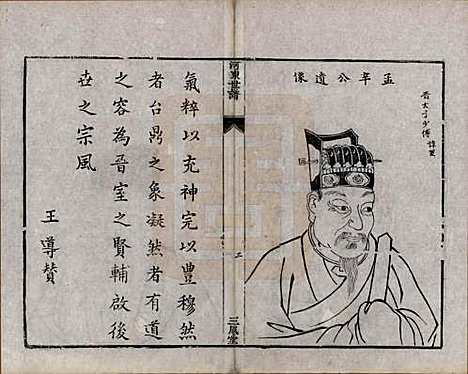 孟年公遺像
晉太子少傅諱
河東世譜
二
三鳳堂
氣粹以充神完以豐穆然
者台鼎之象凝然者有道
之容為晉室之賢輔啟後
世之宗風
王導贊